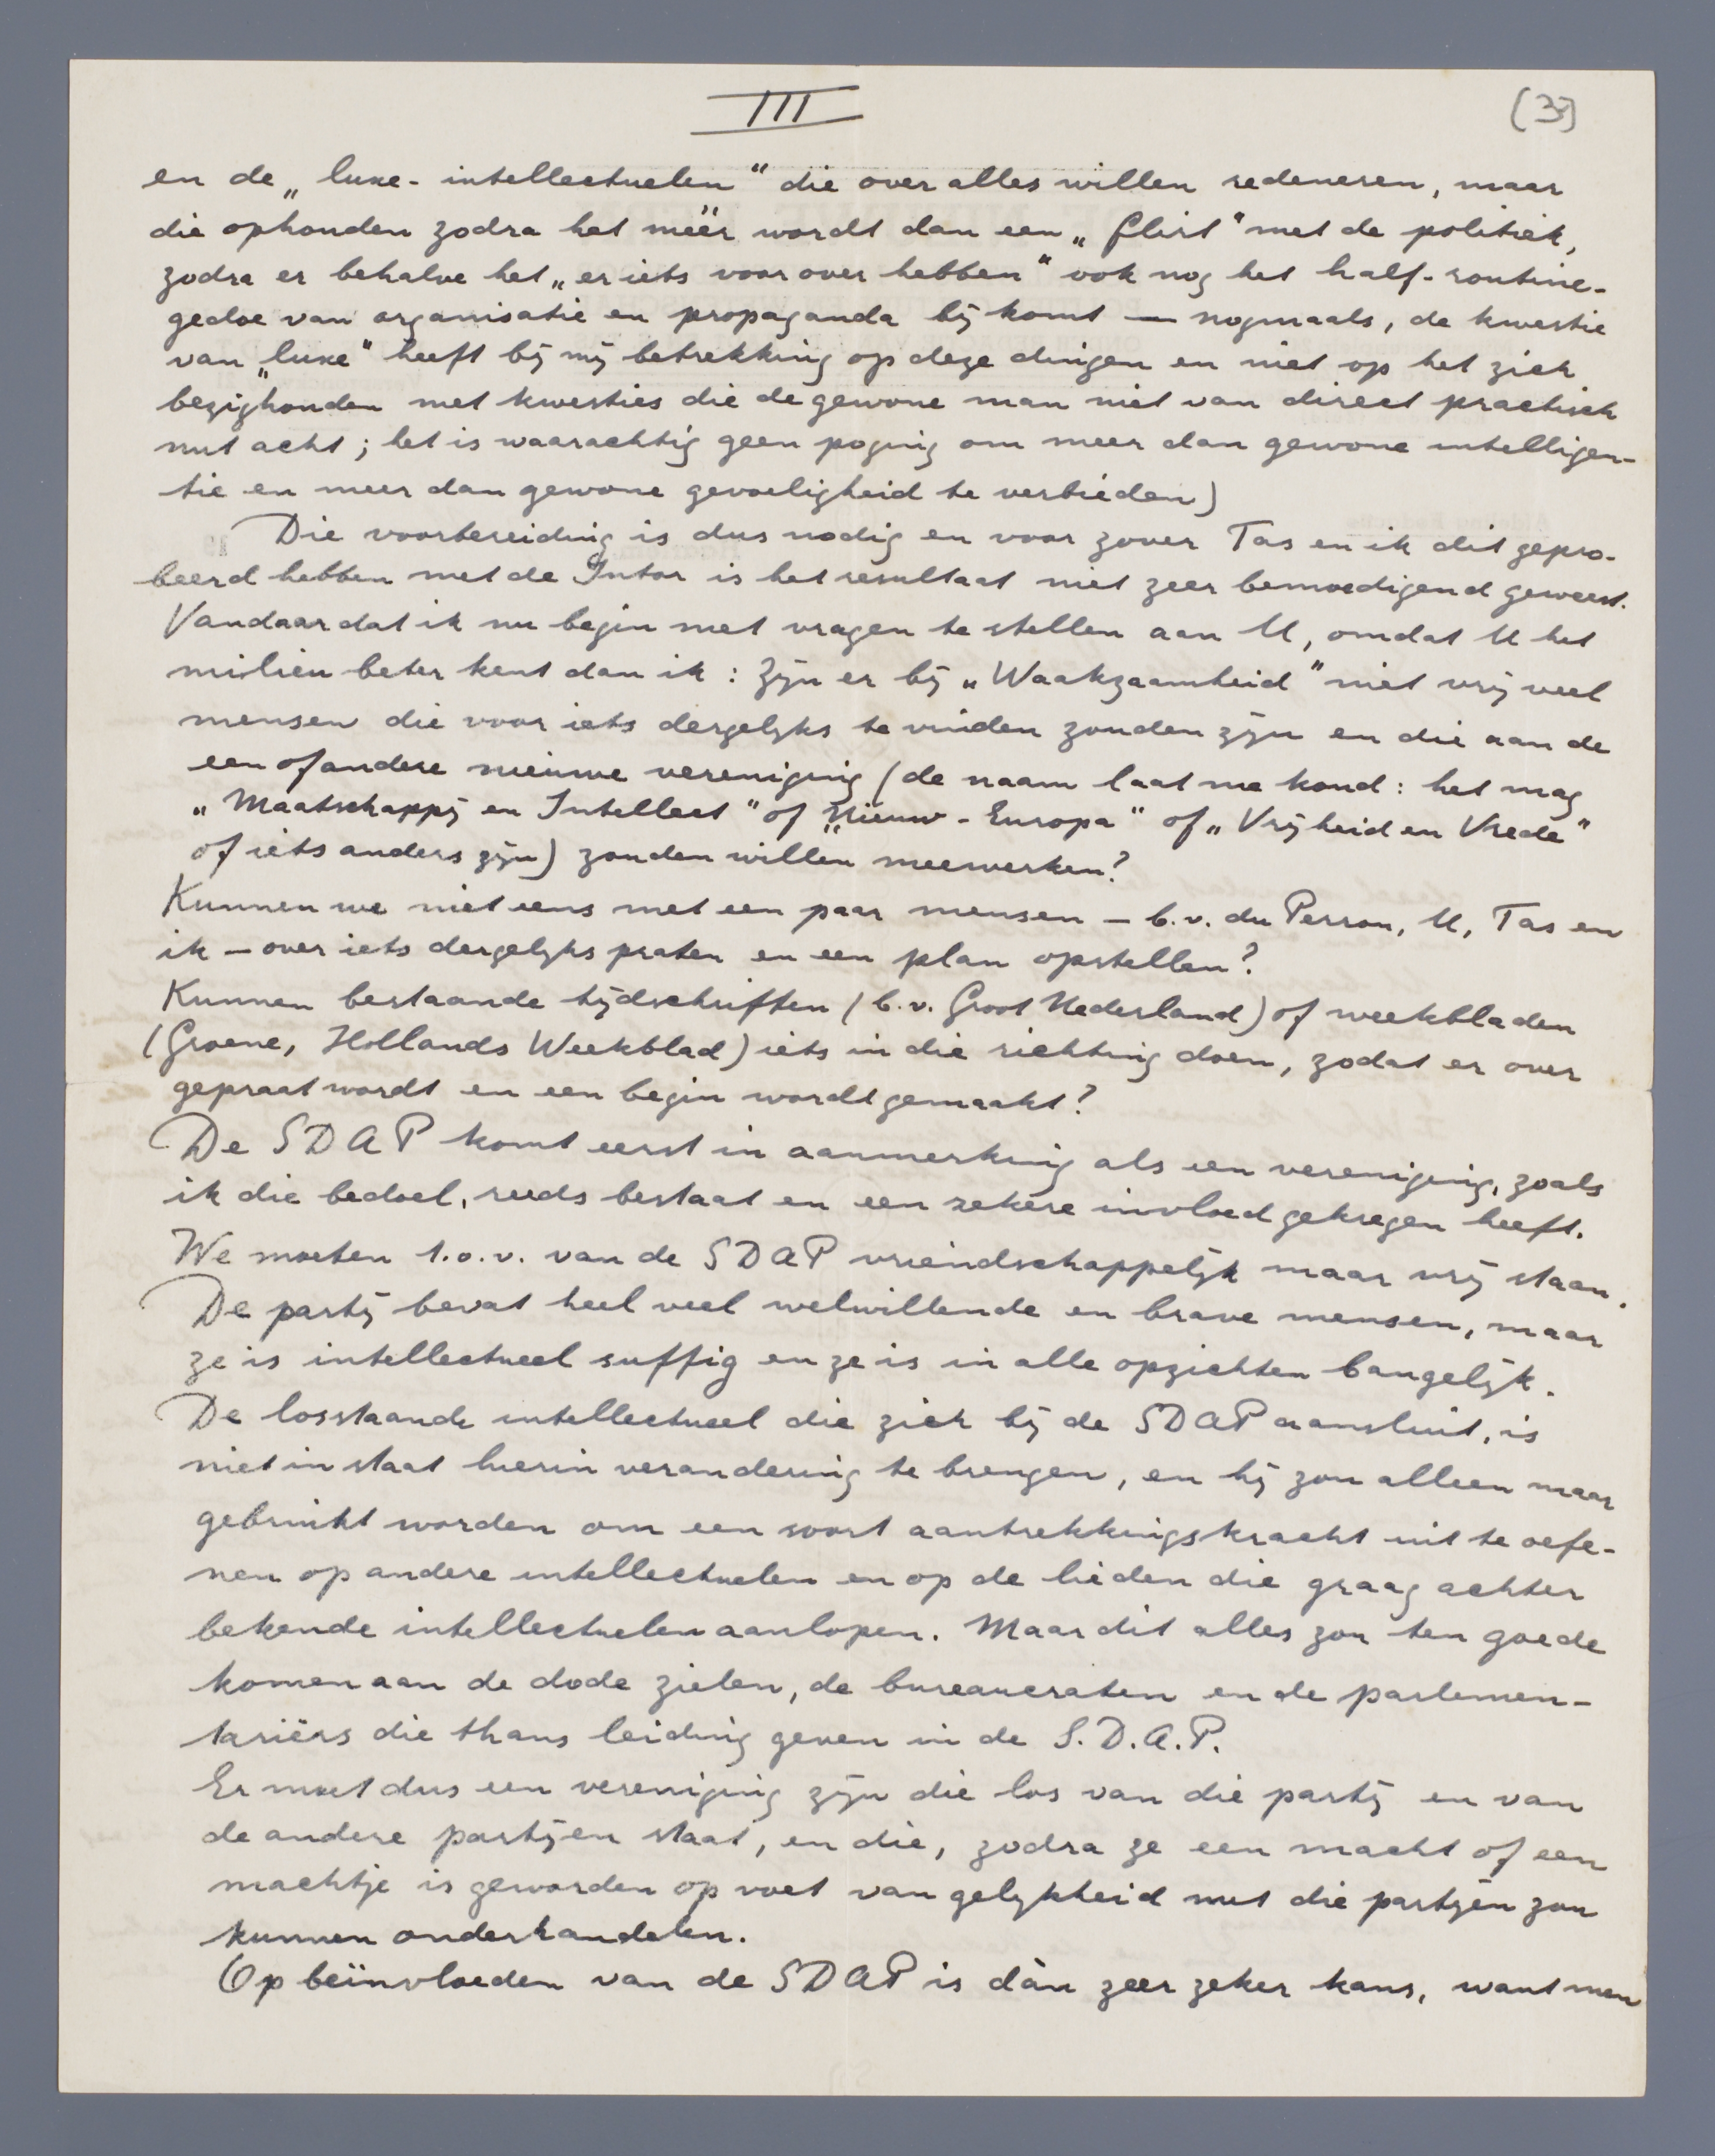 III
(3)
en de „luxe-intellectuelen" die over alles willen redeneren, maar
die ophouden zodra het méér wordt dan een „flirt" met de politiek,
zodra er behalve het „er iets voor over hebben" ook nog het half-routine-
gedoe van organisatie en propaganda bij komt — nogmaals, de kwestie
van „luxe" heeft bij mij betrekking op deze dingen en niet op het zich
bezighouden met kwesties die de gewone man niet van direct practisch
nut acht; het is waarachtig geen poging om meer dan gewone intelligen-
tie en meer dan gewone gevoeligheid te verbieden)
Die voorbereiding is dus nodig en voor zover Tas en ik dit gepro-
beerd hebben met de Intor is het resultaat niet zeer bemoedigend geweest.
Vandaar dat ik nu begin met vragen te stellen aan U, omdat U het
milieu beter kent dan ik: Zijn er bij „Waakzaamheid" niet vrij veel
mensen die voor iets dergelijks te vinden zouden zijn en die aan de
een of andere nieuwe vereniging (de naam laat me koud: het mag
„Maatschappij en Intellect" of „Nieuw-Europa" of „Vrijheid en Vrede"
of iets anders zijn) zouden willen meewerken?
Kunnen we niet eens met een paar mensen — b.v. du Perron, U, Tas en
ik — over iets dergelijks praten en een plan opstellen?
Kunnen bestaande tijdschriften (b.v. Groot Nederland) of weekbladen
(Groene, Hollands Weekblad) iets in die richting doen, zodat er over
gepraat wordt en een begin wordt gemaakt?
De SDAP komt eerst in aanmerking als een vereniging, zoals
ik die bedoel, reeds bestaat en een zekere invloed gekregen heeft.
We moeten t.o.v. van de SDAP vriendschappelijk maar vrij staan.
De partij bevat heel veel welwillende en brave mensen, maar
ze is intellectueel suffig en ze is in alle opzichten bangelijk.
De losstaande intellectueel die zich bij de SDAP aansluit, is
niet in staat hierin verandering te brengen, en hij zou alleen maar
gebruikt worden om een soort aantrekkingskracht uit te oefe-
nen op andere intellectuelen en op de lieden die graag achter
bekende intellectuelen aanlopen. Maar dit alles zou ten goede
komen aan de dode zielen, de bureaucraten en de parlemen-
tariërs die thans leiding geven in de S.D.A.P.
Er moet dus een vereniging zijn die los van die partij en van
de andere partijen staat, en die, zodra ze een macht of een
machtje is geworden op voet van gelijkheid met die partijen zou
kunnen onderhandelen.
Op beïnvloeden van de SDAP is dàn zeer zeker kans, want men